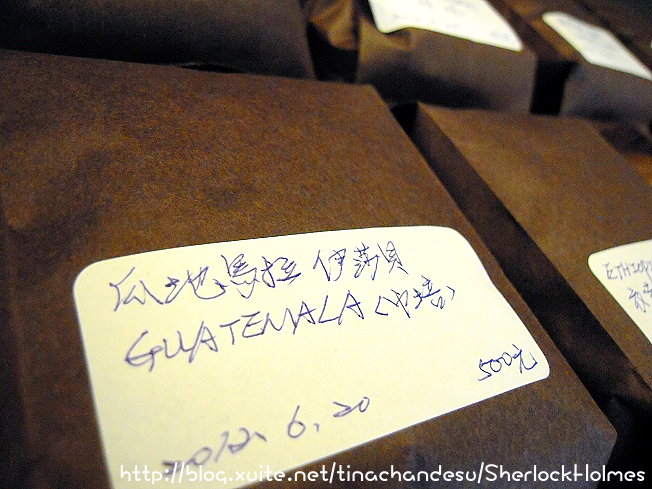 瓜地馬拉 伊莎貝
GUATEMALA <中培>
500元
2012. 6. 20
ETHIOP
http://blog.xuite.net/tinachandesu/SherlockHolmes